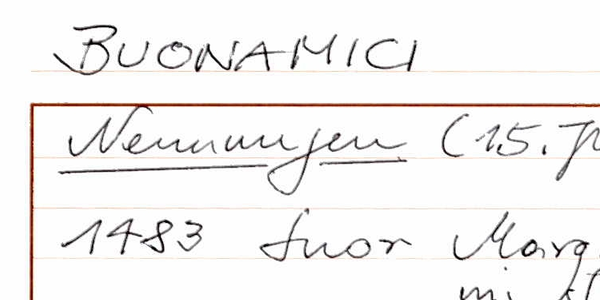 BUONAMICI
Nennungen (15. J
1483 Suor Marg